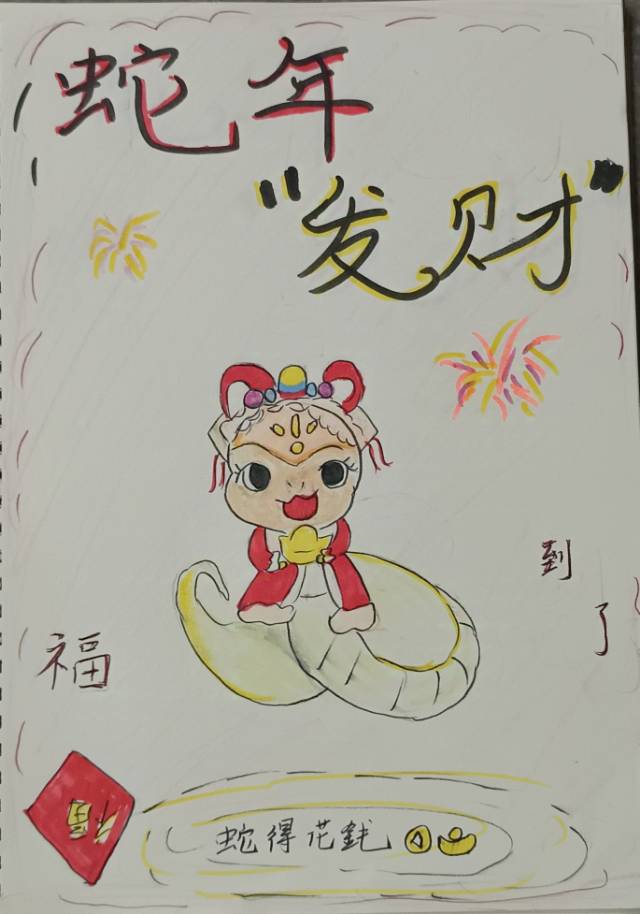 蛇年
"发财"
福
到
了
福
蛇得花钱